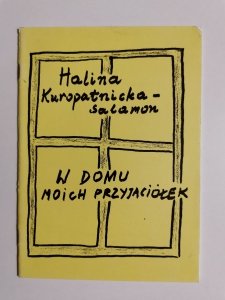 Halina
Kuropatnicka-
Salamon
W DOMU
MOICH PRZYJACIÓŁEK